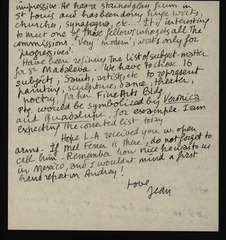 impressive. He has a stained glass firm in
St Louis and has been doing huge works,
churches, synagogs etc. It is interesting
to meet one of those fellows who gets all the
commissions. Very modern, works only for
"progressives".
Have been refining the list of subject matter
for Sr Madaleva. We have to choose 16
subjects, Saints, artists, etc to represent
painting, sculpture, dance, theater,
poetry, for her Fine Arts Bldg.
etc. would be symbolized by Veronica
and Guadalupe. For example. I am
expecting the corrected list today
Hope L.A. received you w. open
arms. If Mel Ferrer is there, do not forget to
call him. Remember how nice he was to us
in Mexico, and I wouldn't mind a first
hand report on Audrey!
Love
Jean